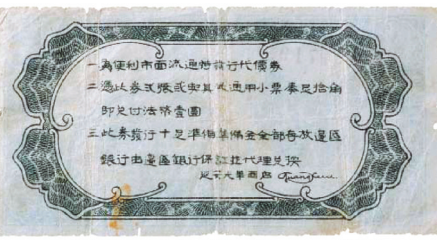 一為便利市面流通特發行代價券
二憑此券式張或與其他通用小票湊足拾角
即兌付法幣壹圓
三此券發行十足準備準備金全部存放邊區
銀行由邊區銀行保証並代理兌換
延安光華商店